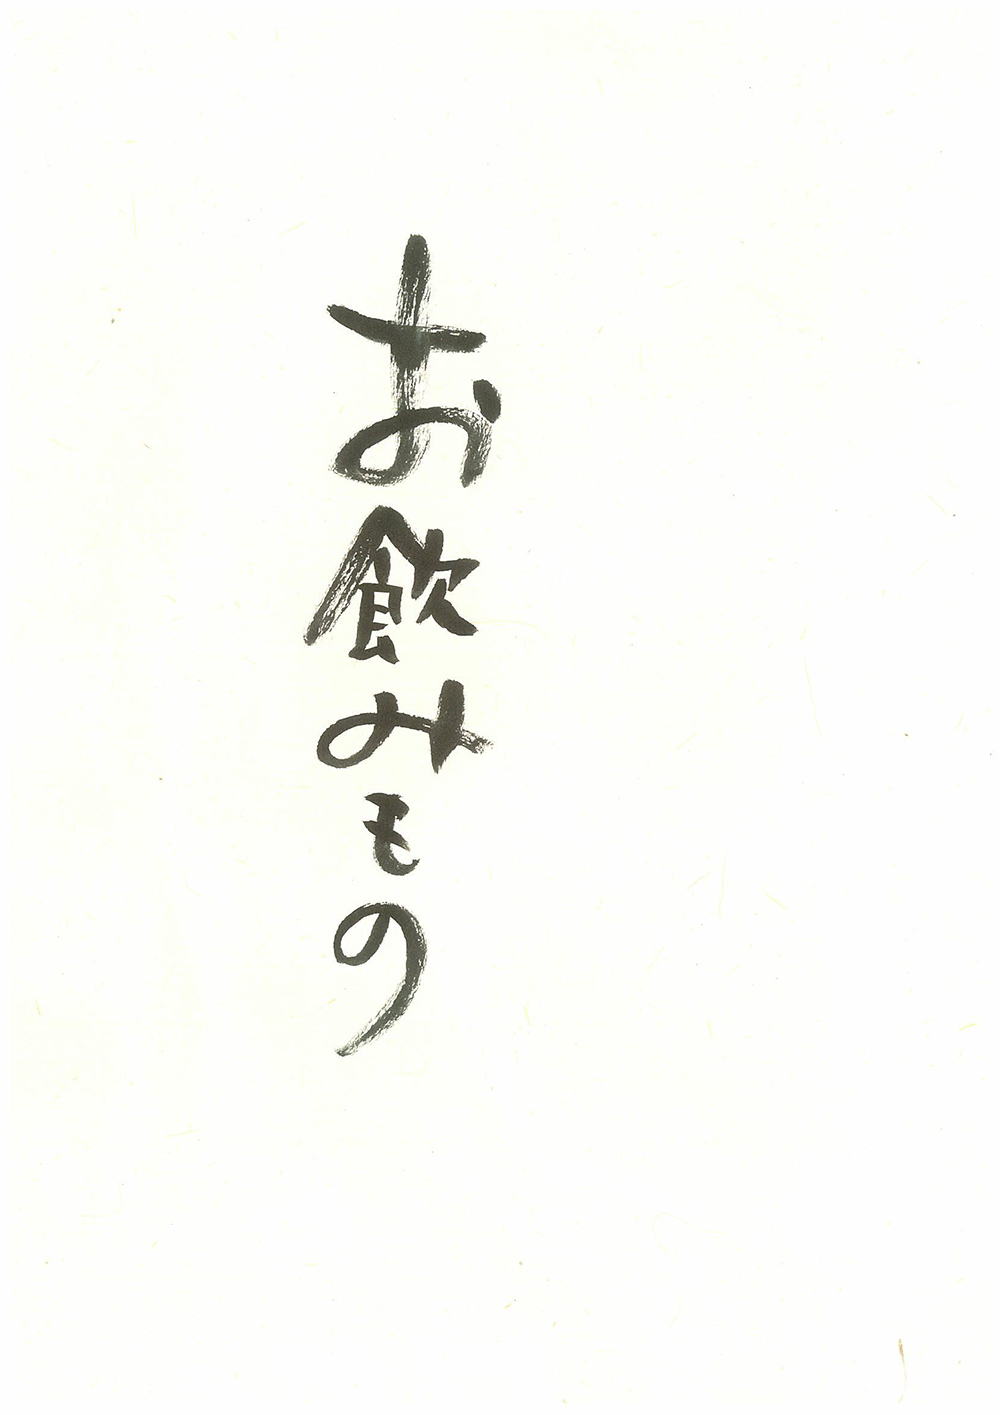 お飲みもの